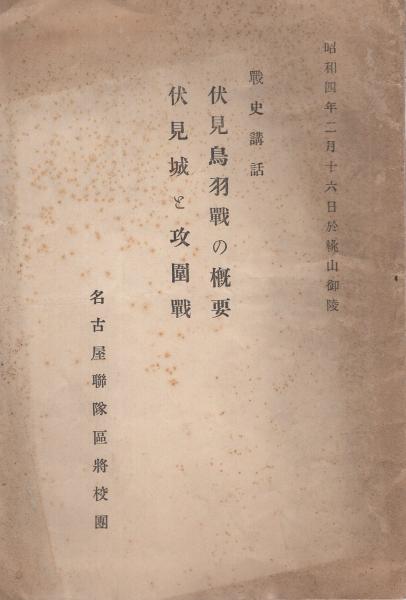 昭和四年二月十六日於桃山御陵
戰史講話
伏見鳥羽戰の槪要
伏見城と攻圍戰
名古屋聯隊區將校團